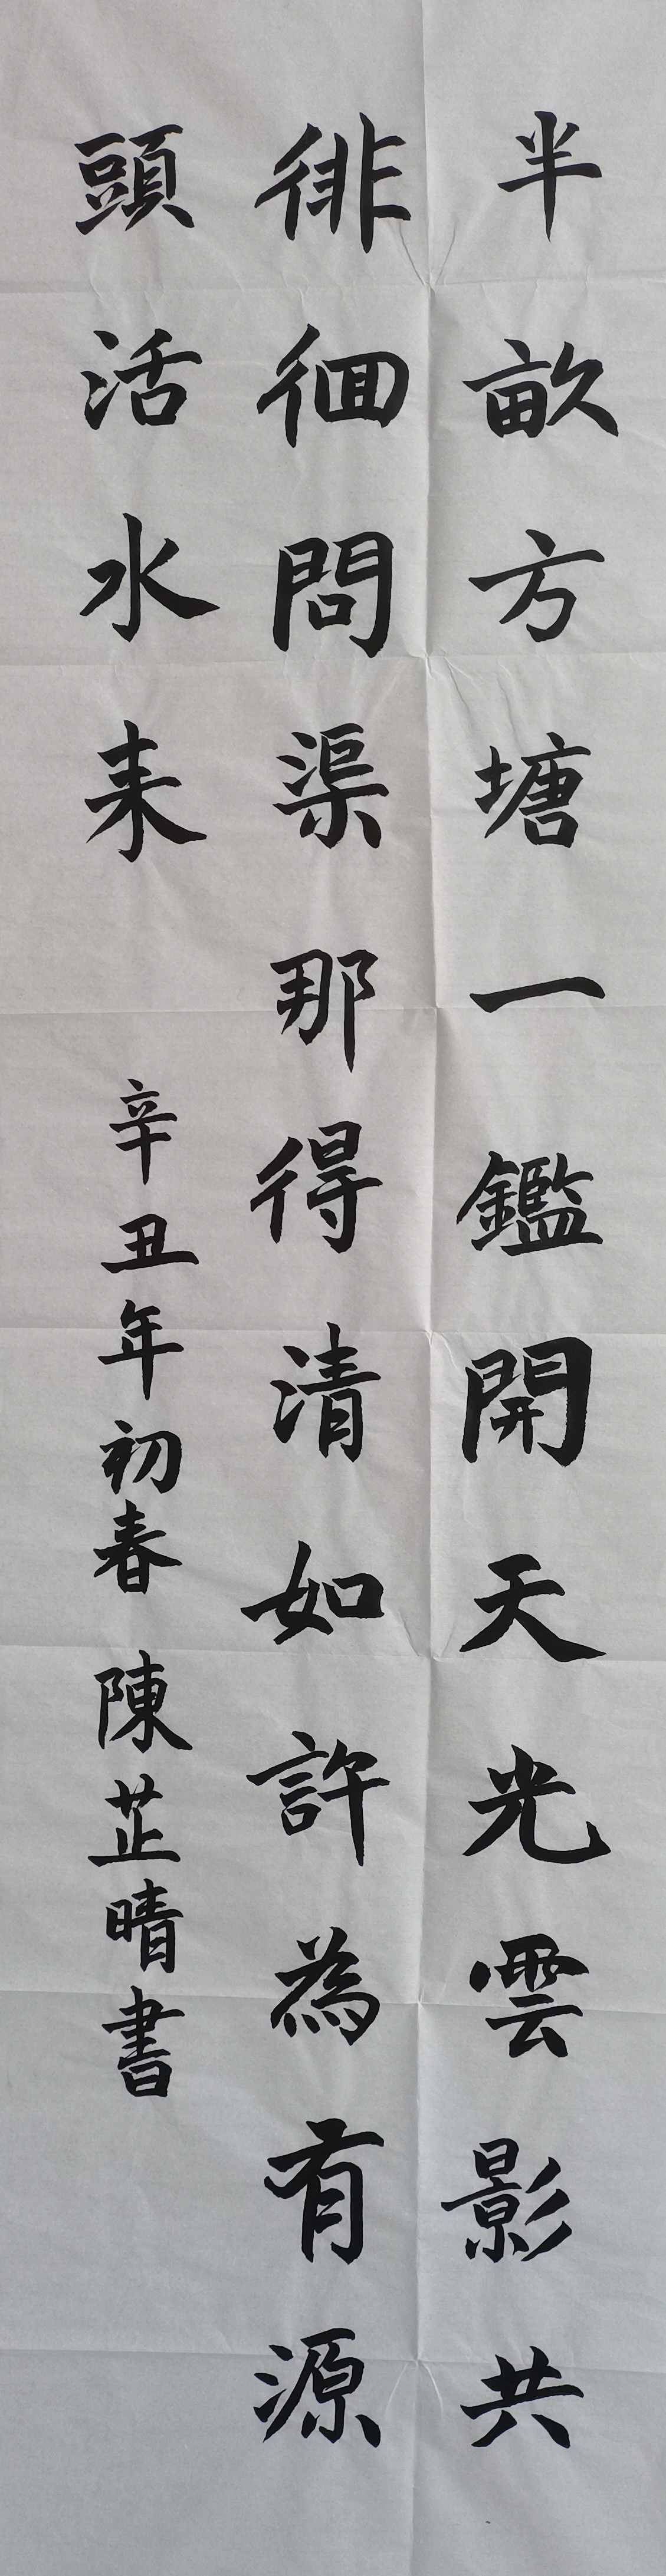 半畝方塘一鑑開天光雲影共
徘徊問渠那得清如許為有源
頭活水来
辛丑年初春 陳芷晴書